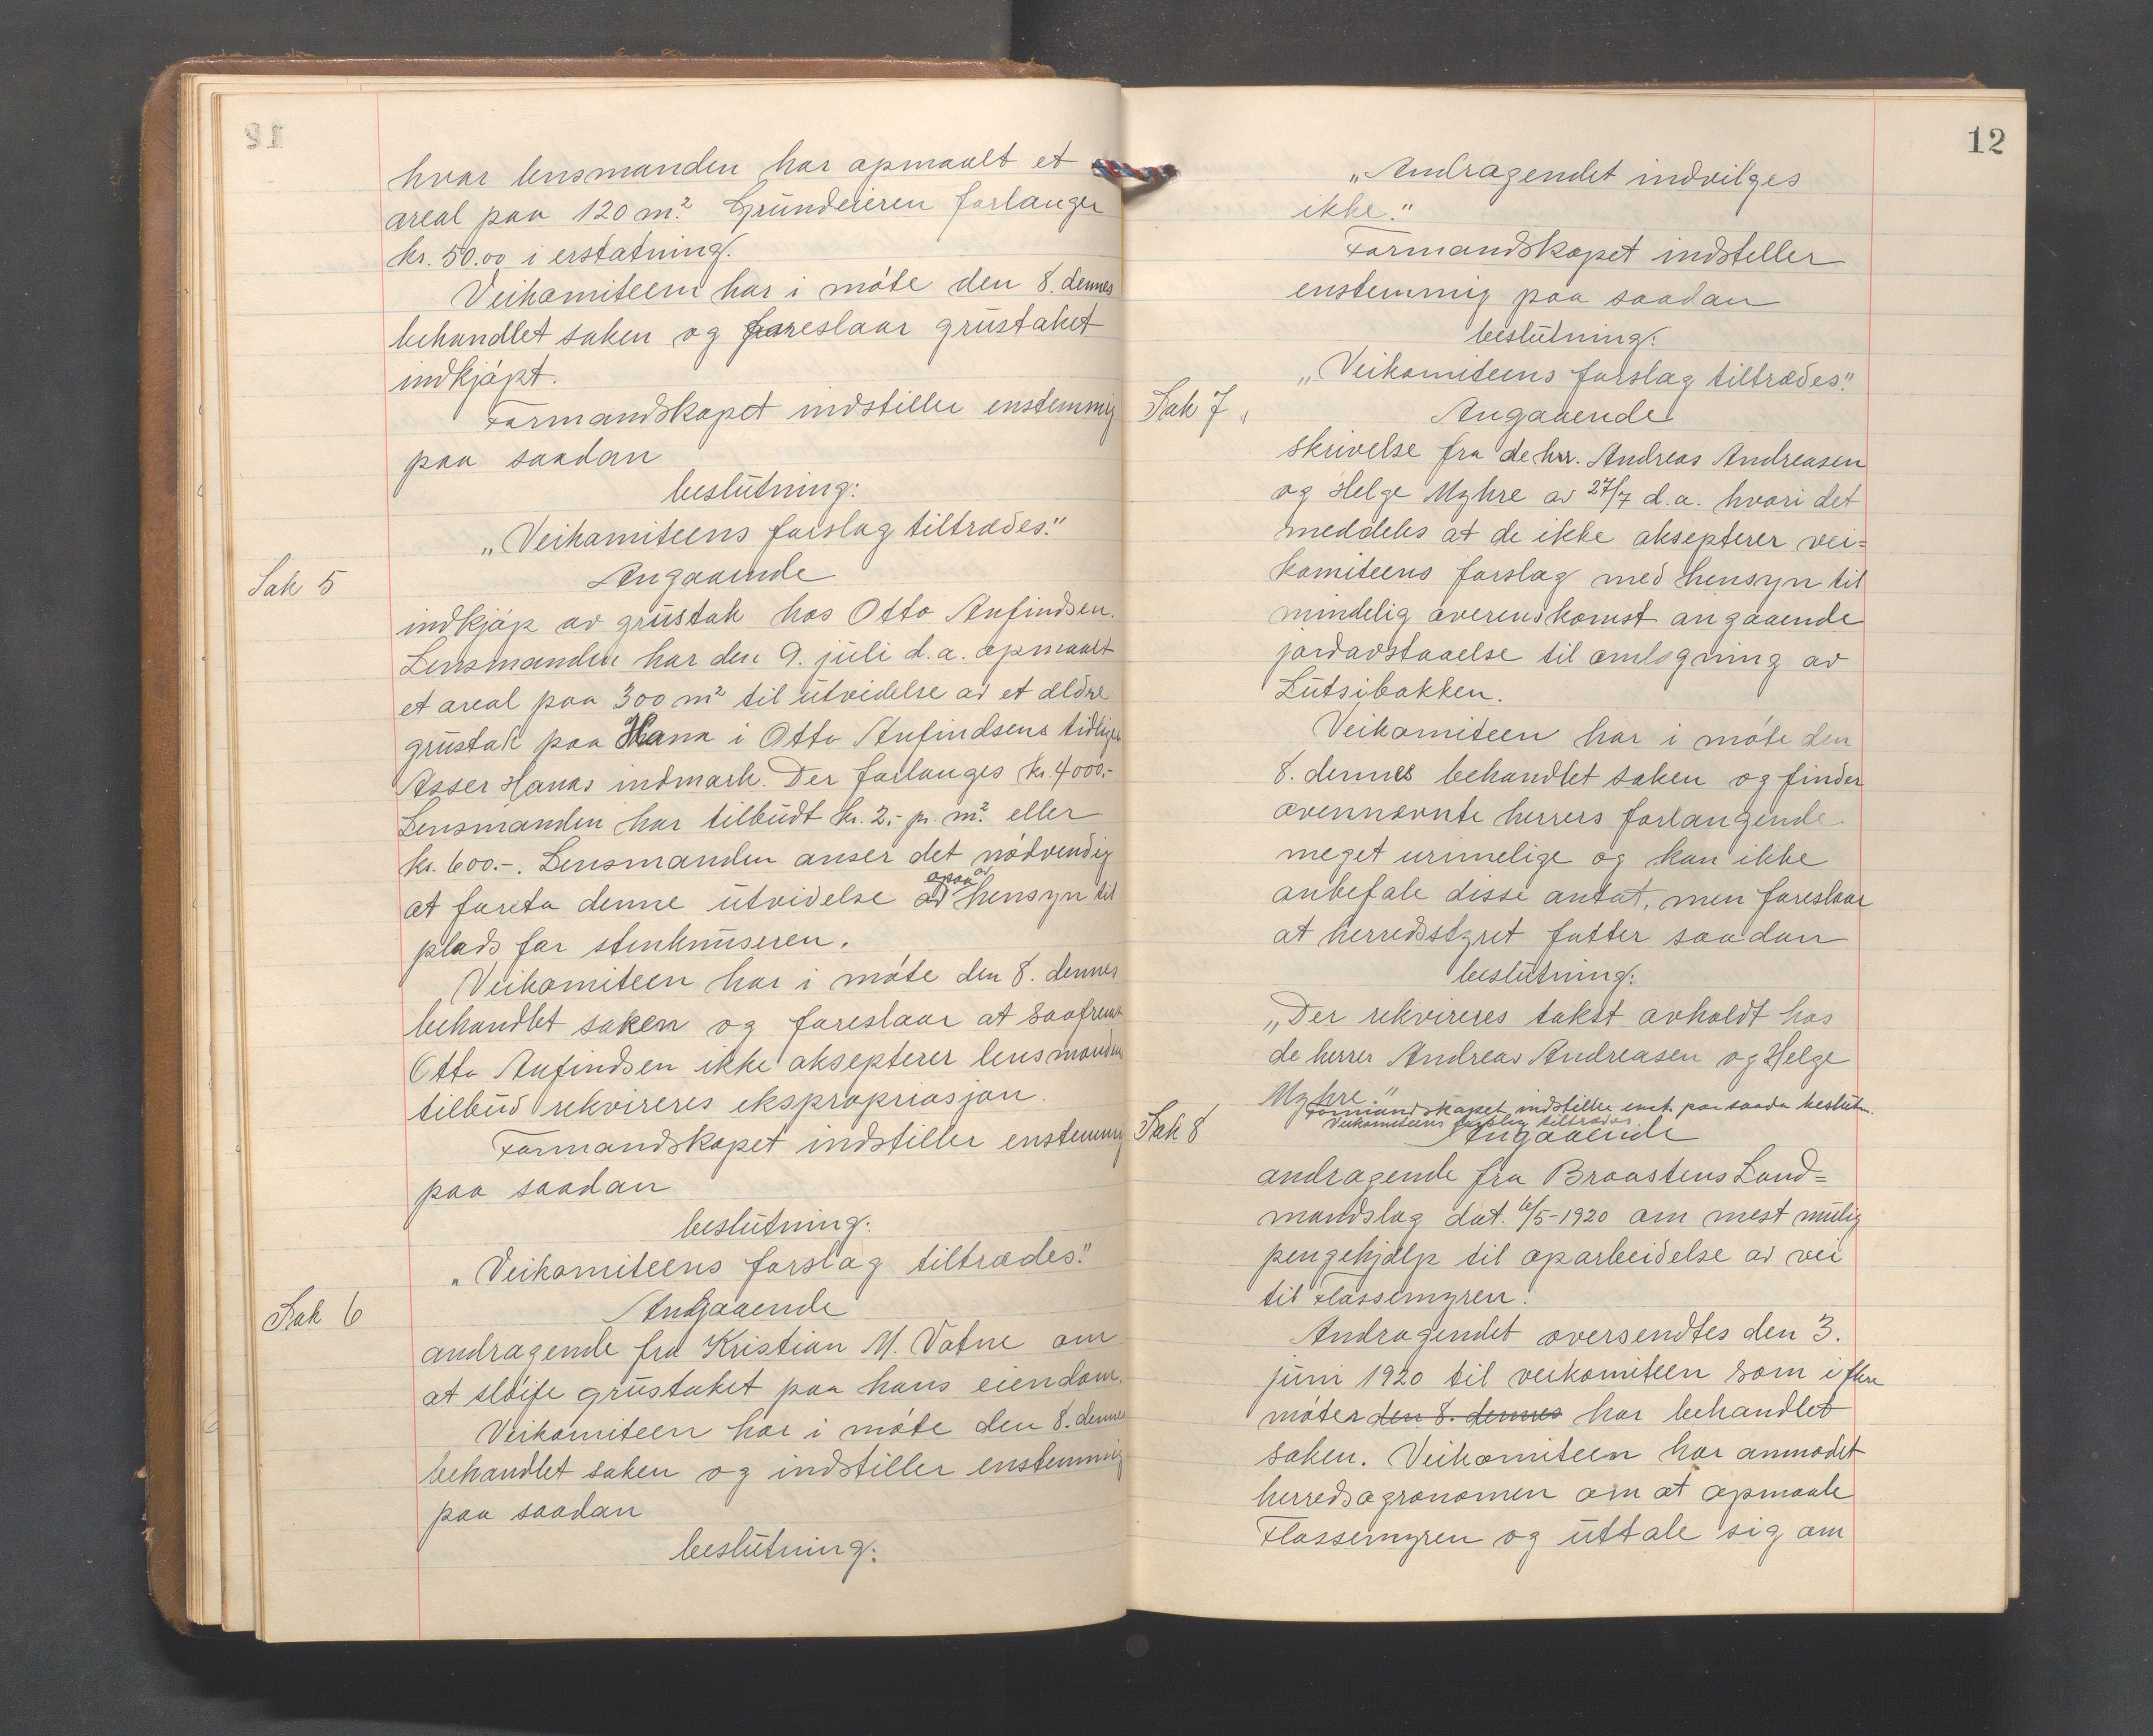 hvor lensmanden har opmaalt et
areal paa 120 m². Grundeieren forlanger
kr. 50.00 i erstatning.
Veikomiteen har i møte den 8. dennes
behandlet saken og foreslaar grustaket
indkjøpt.
Formandskapet indstiller enstemmig
paa saadan
beslutning:
„Veikomiteens forslag tiltrædes."
Sak 5
Angaaende
indkjøp av grustak hos Otto Anfindsen.
Lensmanden har den 9. juli d.a. opmaalt
et areal paa 300 m² til utvidelse av et ældre
grustak paa Hana i Otto Anfindsens tidligere
Asser Hanas indmark. Der forlanges kr. 4000.-
Lensmanden har tilbudt kr. 2.- pr. m². eller
kr. 600.-. Lensmanden anser det nødvendig
at foreta denne utvidelse av hensyn til
plads for stenknuseren.
Veikomiteen har i møte den 8. dennes
behandlet saken og foreslaar at saafremt
Otto Anfindsen ikke aksepterer lensmandens
tilbud rekvireres ekspropriasjon.
Formandskapet indstiller enstemmig
paa saadan
beslutning:
„Veikomiteens forslag tiltrædes."
Sak 6
Angaaende
andragende fra Kristian M. Vatne om
at sløife grustaket paa hans eiendom.
Veikomiteen har i møte den 8. dennes
behandlet saken og indstiller enstemmig
paa saadan
beslutning:
12
„Andragendet indvilges
ikke."
Formandskapet indsteller
enstemmig paa saadan
beslutning:
„Veikomiteens forslag tiltrædes."
Sak 7.
Angaaende
skrivelse fra de hrr. Andreas Andreasen
og Helge Myhre av 27/7 d.a. hvori det
meddeles at de ikke aksepterer vei=
komiteens forslag med hensyn til
mindelig overenskomst angaaende
jordavstaaelse til omlægning av
Lutsibakken.
Veikomiteen har i møte den
8. dennes behandlet saken og finder
ovennævnte herrers forlangende
meget urimelige og kan ikke
anbefale disse antat, men foreslaar
at herredsstyret fatter saadan
beslutning:
„Der rekvireres takst avholdt hos
de herrer Andreas Andreasen og Helge
Myhre."
Formandskapet indstiller enst. paa saada beslutn.
Veikomiteens forslag tiltrædes.
Sak 8
Angaaende
andragende fra Braastens Land=
mandslag dat. 6/5-1920 om mest mulig
pengehjælp til oparbeidelse av vei
til Flassemyren.
Andragendet oversendtes den 3.
juni 1920 til veikomiteen som i flere
møter den 8. dennes har behandlet
saken. Veikomiteen har anmodet
herredsagronomen om at opmaale
Flassemyren og uttale sig om